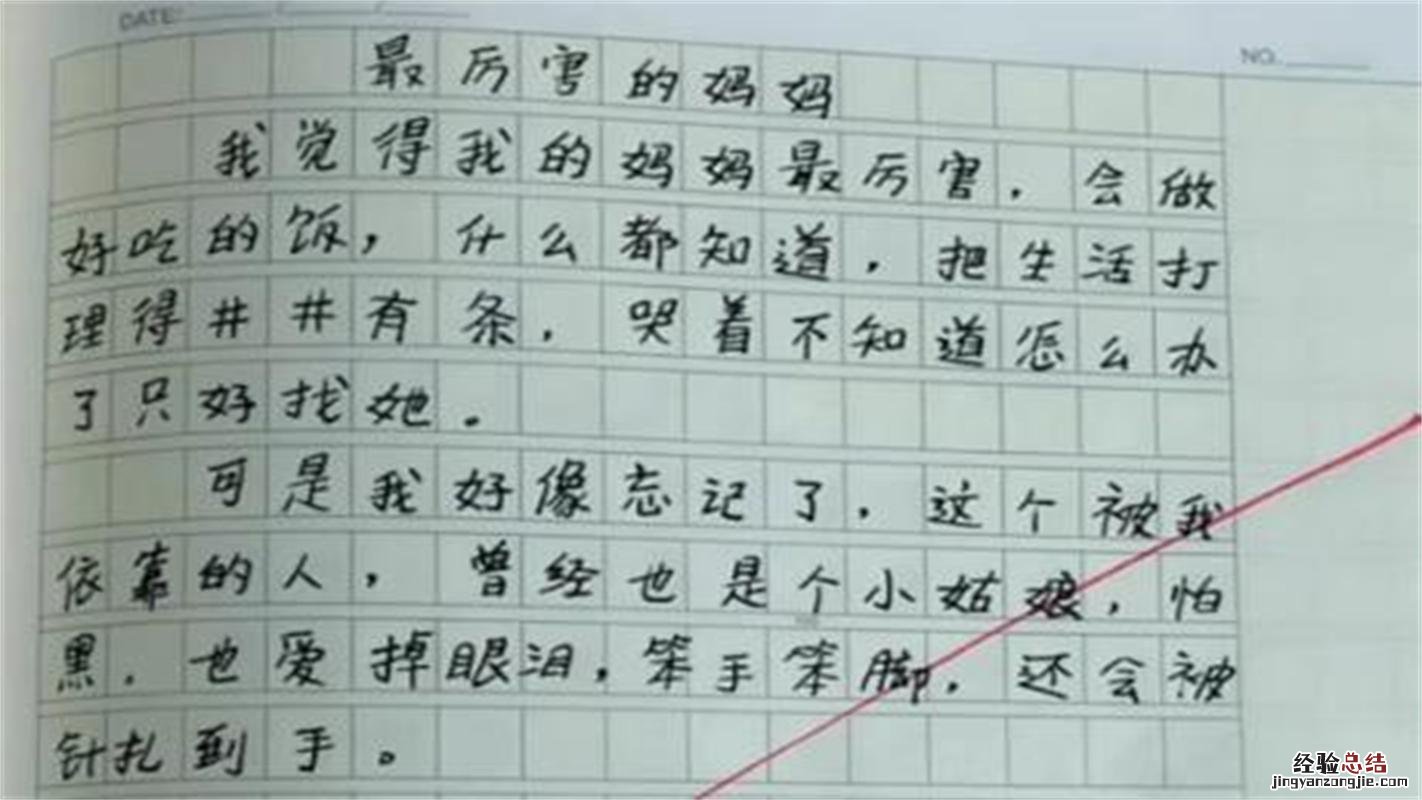 DATE: / /
NO.
最厉害的妈妈
我觉得我的妈妈最厉害，会做
好吃的饭，什么都知道，把生活打
理得井井有条，哭着不知道怎么办
了只好找她。
可是我好像忘记了，这个被我
依靠的人，曾经也是个小姑娘，怕
黑，也爱掉眼泪，笨手笨脚，还会被
针扎到手。
经验总结
jingyanzongjie.com